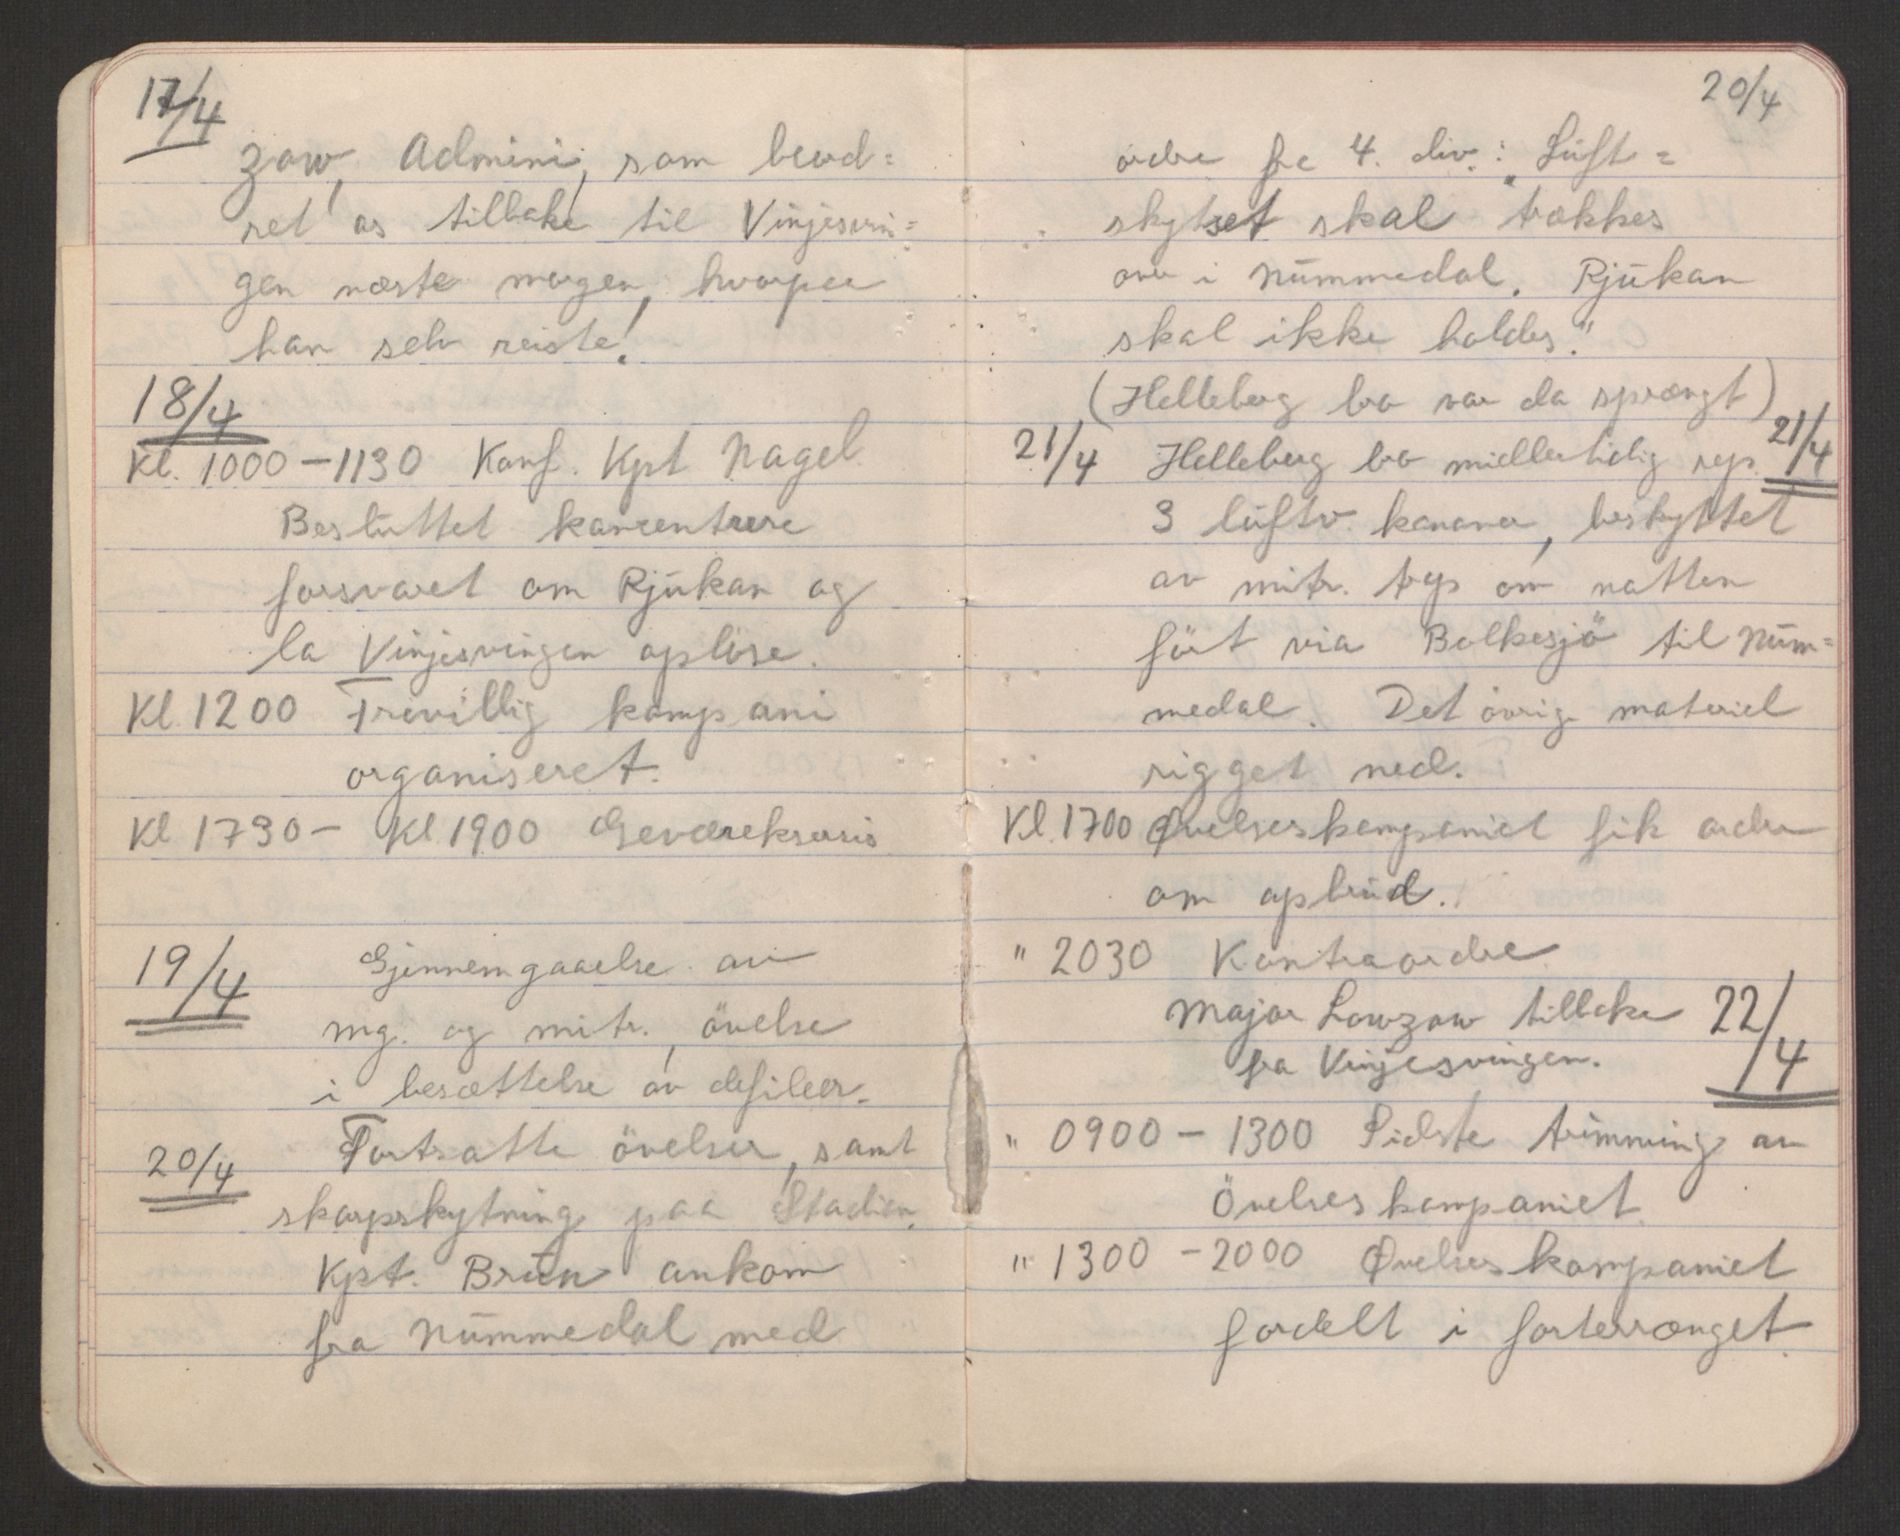 17/4
zow, Admini, som beord=
ret os tilbake til Vinjesvin=
gen næste morgen, hvorpaa
han selv reiste!
18/4
Kl. 1000 – 1130 Konf. Kpt Nagel.
Besluttet koncentrere
forsvaret om Rjukan og
la Vinjesvingen opløse.
Kl. 1200 Frevillig kompani
organiseret.
Kl 1730 – Kl 1900 Geværeksersis
19/4 Gjennemgaaelse av
mg. og mitr., övelse
i besættelse av defileer.
20/4 Fortsatte övelser, samt
skarpskytning paa Stadion.
Kpt. Brun ankom
fra Nummedal med
20/4
ordre fra 4. div.: "Luft=
skytset skal trækkes
over i Nummedal. Rjukan
skal ikke holdes."
(Helleberg bro var da sprængt)
21/4 Helleberg bro midlertidig rep. 21/4
3 luftv. kanoner, beskyttet
av mitr. trop om natten
fört via Bolkesjö til Num=
medal. Det övrige materiel
rigget ned.
Kl. 1700 Øvelseskompaniet fik ordre
om opbrud.
" 2030 Kontraordre
Major Lowzow tilbake 22/4
fra Vinjesvingen.
" 0900 – 1300 Sidste trimming av
Övelseskompaniet.
" 1300 – 2000 Øvelseskompaniet
fordelt i forterrænget.